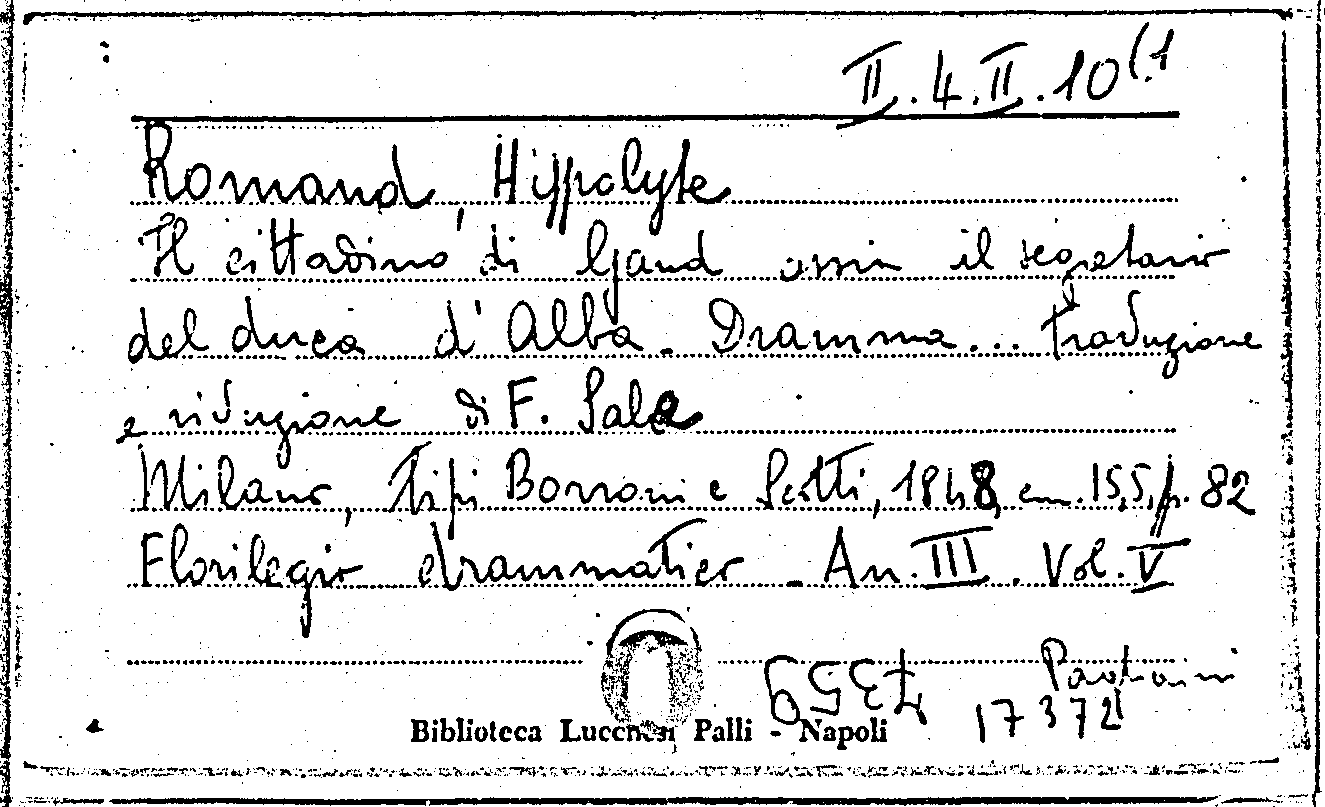 II.4.II.10(1
Romand, Hippolyte
Il cittadino di Gand ossia il segretario
del duca d'Alba. Dramma... traduzione
e riduzione di F. Sala
Milano, Tipi Borroni e Scotti, 1848, cm. 15,5, p. 82
Florilegio drammatico - An. III. Vol. V
7359
17372
Biblioteca Lucchesi Palli - Napoli